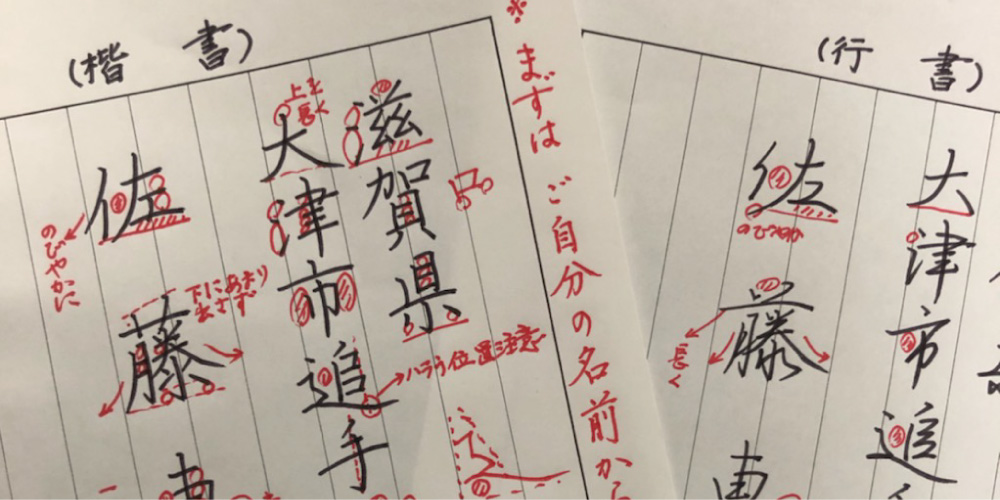 (行書)
大津市追
佐藤
のびやか
長く
※まずはご自分の名前から
(楷書)
滋賀県
大津市追手
上を長く
ハラう位置注意
佐藤
のびやかに
下にあまり出さず